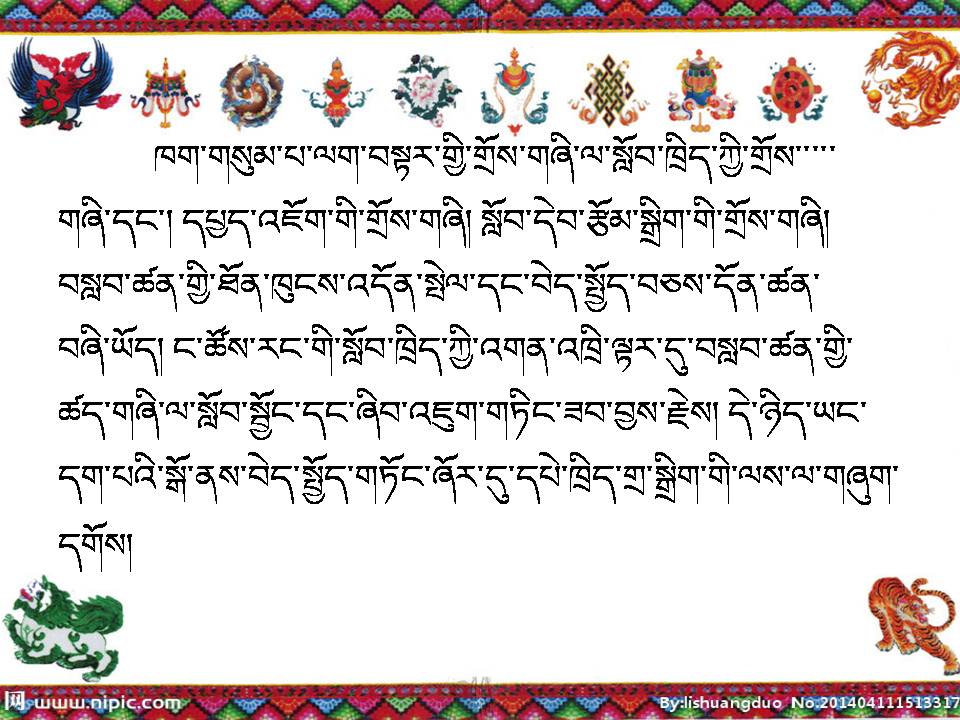 ཁག་གསུམ་པ་ལག་བསྟར་གྱི་གྲོས་གཞི་ལ་སློབ་ཁྲིད་ཀྱི་གྲོས་་་་་
གཞི་དང་། དཔྱད་འཇོག་གི་གྲོས་གཞི། སློབ་དེབ་རྩོམ་སྒྲིག་གི་གྲོས་གཞི།
བསླབ་ཚན་གྱི་ཐོན་ཁུངས་འདོན་སྤེལ་དང་བེད་སྤྱོད་བཅས་དོན་ཚན་
བཞི་ཡོད། ང་ཚོས་རང་གི་སློབ་ཁྲིད་ཀྱི་འགན་འཁྲི་ལྟར་དུ་བསླབ་ཚན་གྱི་
ཚད་གཞི་ལ་སློབ་སྦྱོང་དང་ཞིབ་འཇུག་གཏིང་ཟབ་བྱས་རྗེས། དེ་ཉིད་ཡང་
དག་པའི་སྒོ་ནས་བེད་སྤྱོད་གཏོང་ཞོར་དུ་དཔེ་ཁྲིད་གྲ་སྒྲིག་གི་ལས་ལ་གཞུག་
དགོས།
网 www.nipic.com
By:lishuangduo No:20140411151331​7